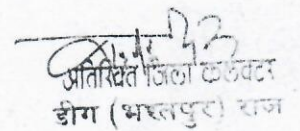 अतिरिक्त जिला कलेक्टर
डीग (भरतपुर) राज